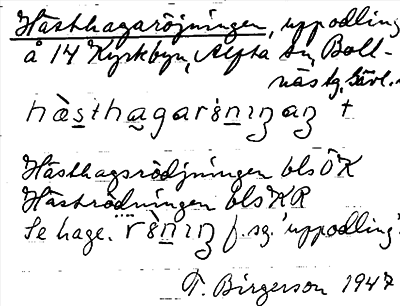 Hästhagaröjningen, uppodling
å 14 Kyrkbyn, Alfta sn, Boll-
näs tg, Gävl.
hὰsthagarö̀niŋaŋ †
Hästhagsrödjningen bls ÖK
Häströdningen bls KR
Se hage. rö̀niŋ f. sg. 'uppodling'.
T. Birgerson 1947